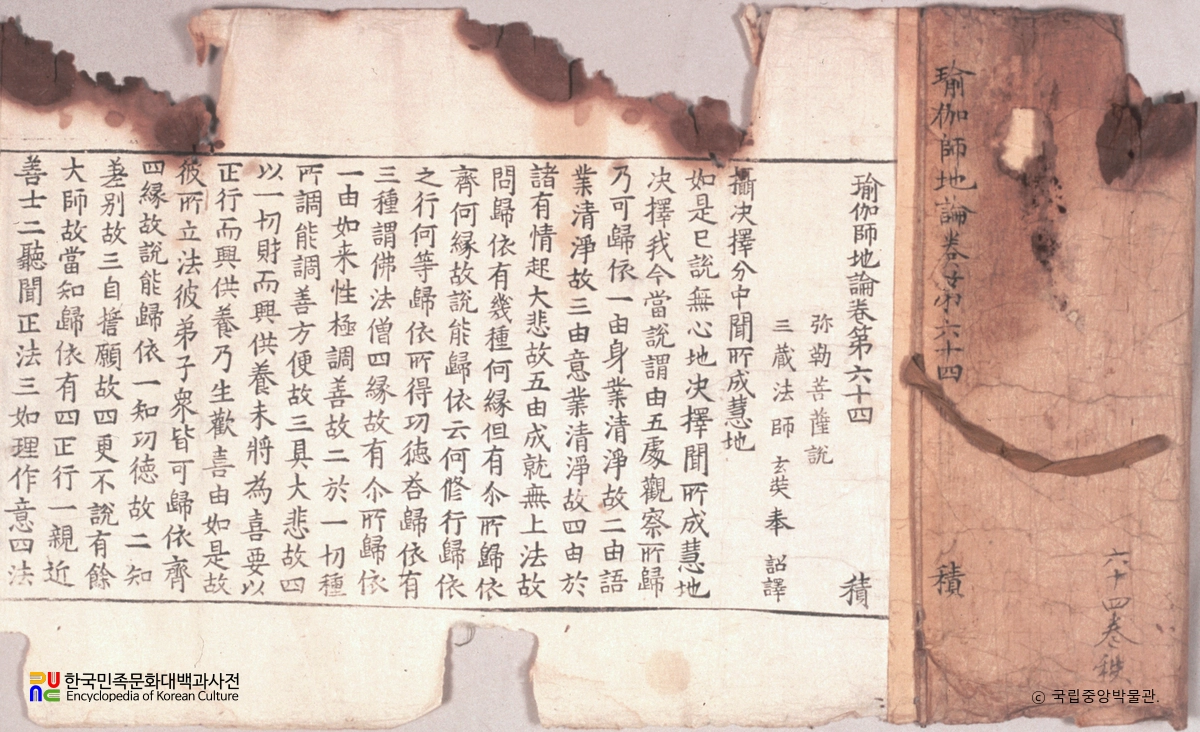 瑜伽師地論卷第六十四
積
六十四卷
瑜伽師地論卷第六十四 積
弥勒菩薩說
三藏法師 玄奘奉 詔譯
攝决擇分中聞所成慧地
如是已說無心地决擇聞所成慧地
决擇我今當說謂由五處觀察所歸
乃可歸依一由身業清淨故二由語
業清淨故三由意業清淨故四由於
諸有情起大悲故五由成就無上法故
問歸依有幾種何緣但有尒所歸依
齊何緣故說能歸依云何修行歸依
之行何等歸依所得功德荅歸依有
三種謂佛法僧四緣故有尒所歸依
一由如来性極調善故二於一切種
所調能調善方便故三具大悲故四
以一切財而興供養未將為喜要以
正行而興供養乃生歡喜由如是故
彼所立法彼弟子衆皆可歸依齊
四緣故說能歸依一知功德故二知
差别故三自誓願故四更不說有餘
大師故當知歸依有四正行一親近
善士二聽聞正法三如理作意四法
한국민족문화대백과사전
Encyclopedia of Korean Culture
© 국립중앙박물관.